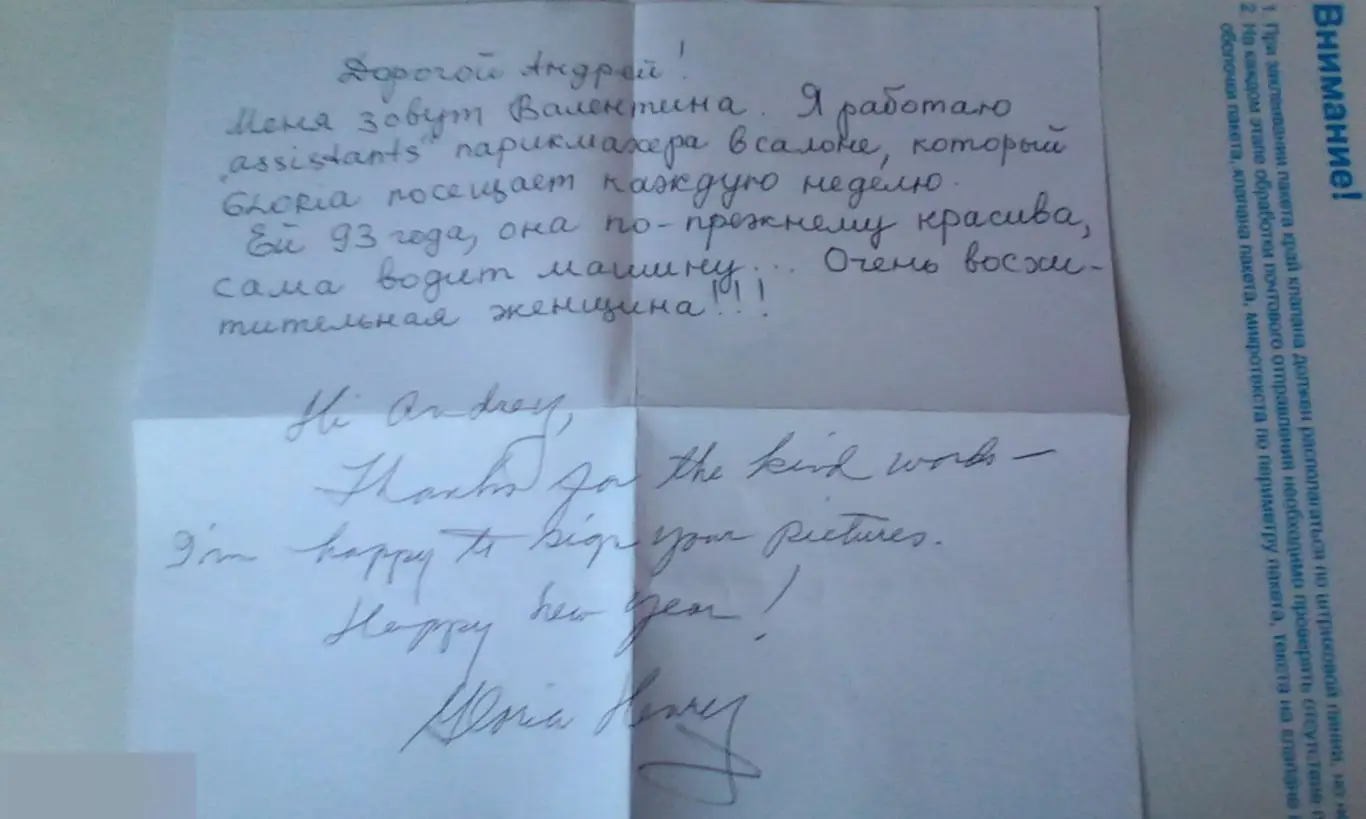 Дорогой Андрей!
Меня зовут Валентина. Я работаю
„assistants" парикмахера в салоне, который
GLORIA посещает каждую неделю.
Ей 93 года, она по-прежнему красива,
сама водит машину... Очень восхи-
тительная женщина!!!
Hi Andrey,
Thanks for the kind words —
I'm happy to sign your pictures.
Happy New Year!
Gloria Henry
Внимание!
1. При заклеивании пакета край клапана должен располагаться по штриховой линии, но не
2. На каждом этапе обработки почтового отправления необходимо проверить отсутствие п
оболочки пакета, клапана пакета, микротекста по периметру пакета, текста на клапане